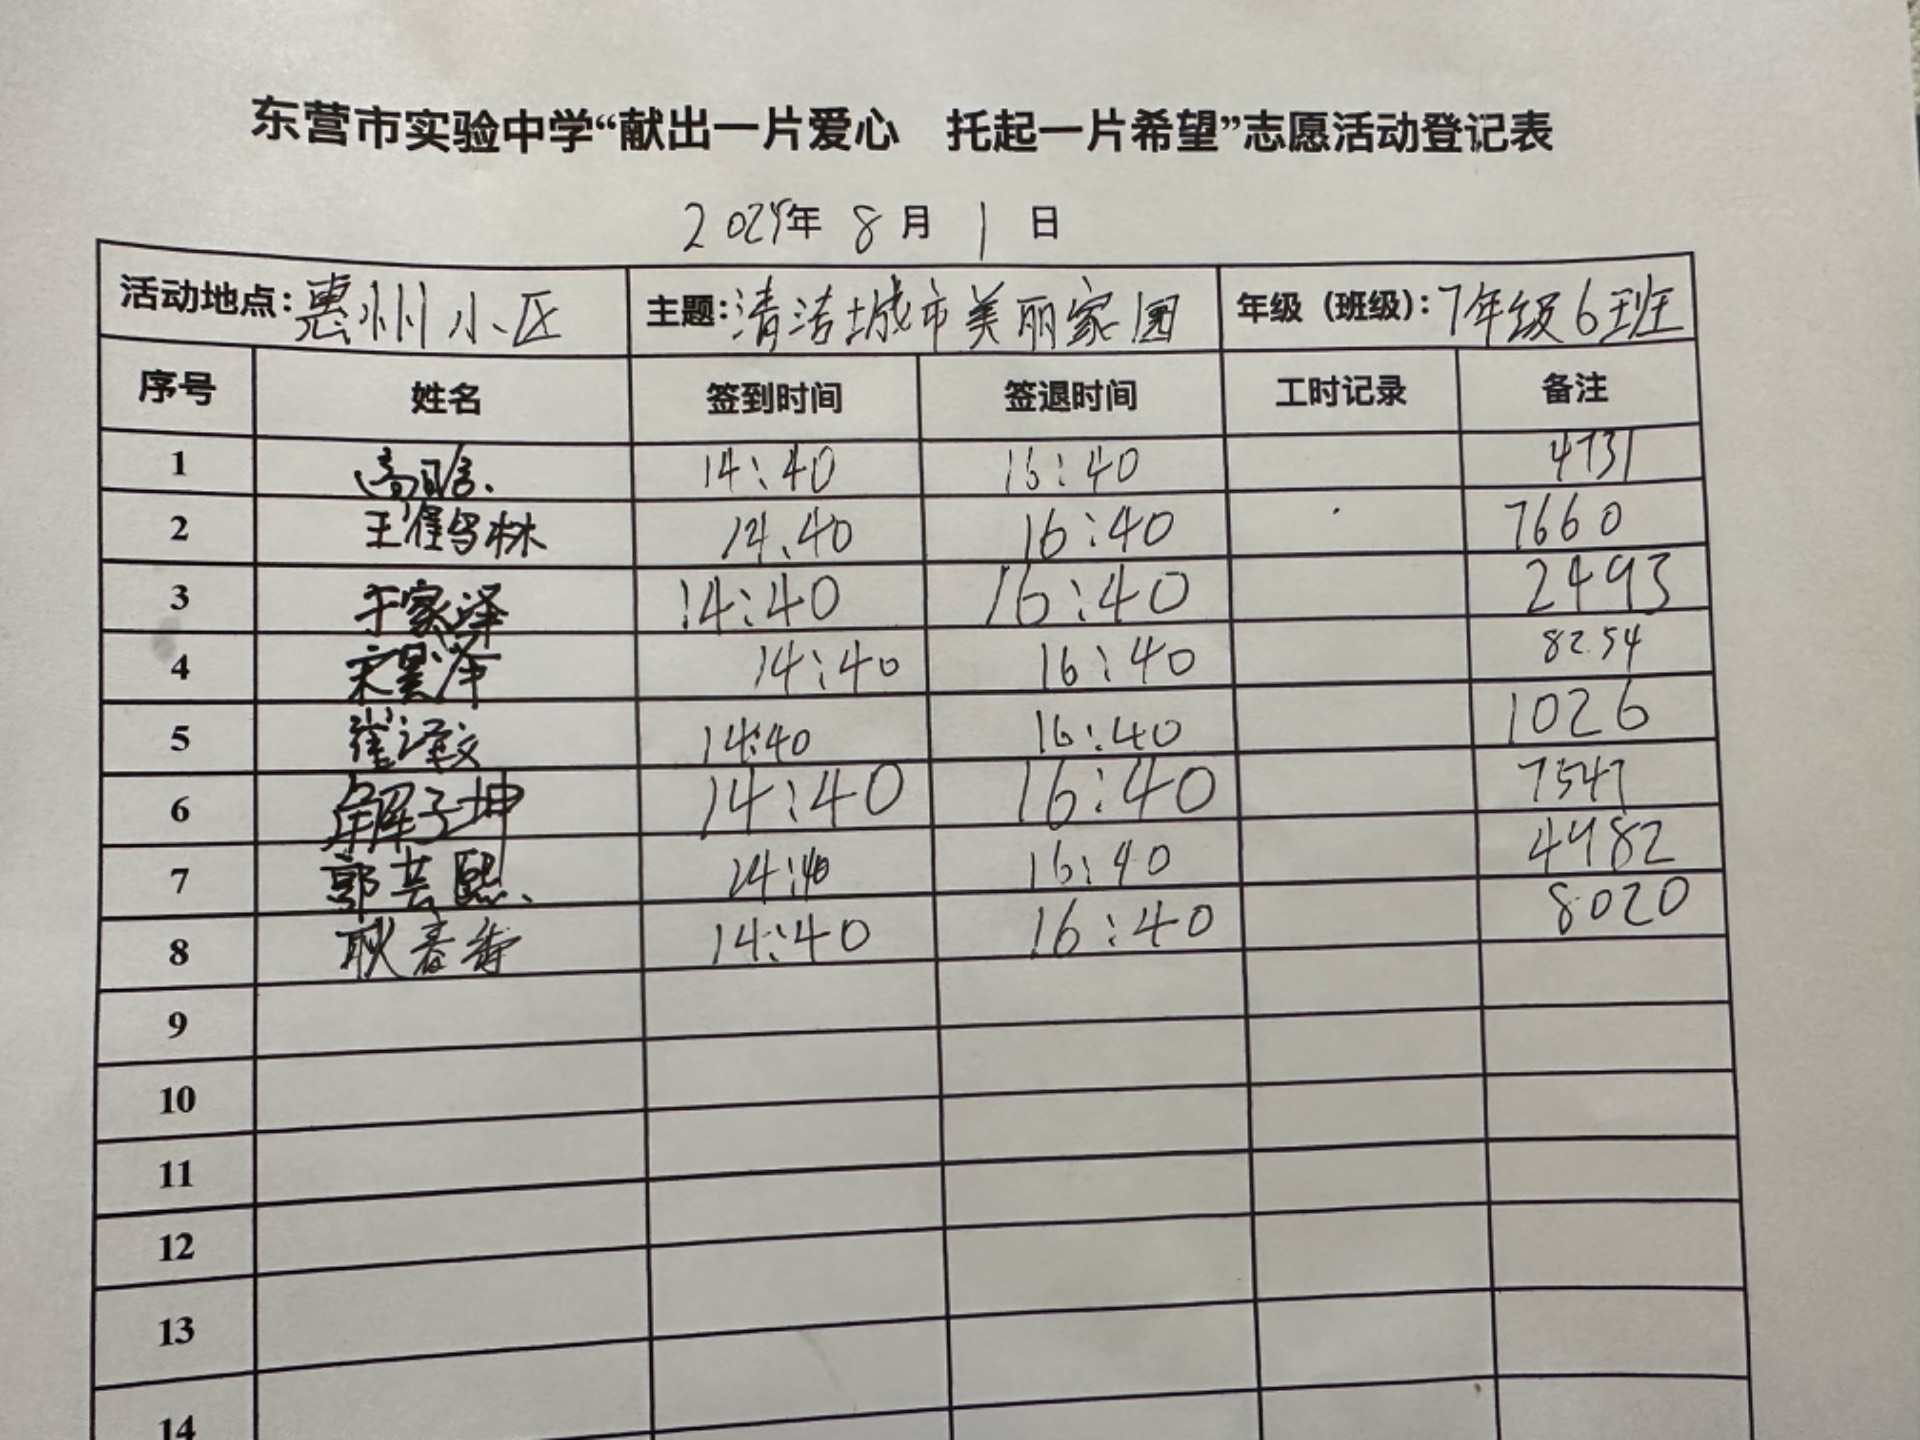 东营市实验中学“献出一片爱心 托起一片希望”志愿活动登记表
2024年 8月 1日
活动地点:惠州小区 主题:清洁城市美丽家园 年级（班级）:7年级6班
序号 姓名 签到时间 签退时间 工时记录 备注
1 高 14:40 16:40 4731
2 王 林 14:40 16:40 7660
3 于家泽 14:40 16:40 2493
4 宋昊泽 14:40 16:40 8254
5 崔泽文 14:40 16:40 1026
6 解子坤 14:40 16:40 7547
7 郭芸熙 14:40 16:40 4982
8 耿春 14:40 16:40 8020
9
10
11
12
13
14